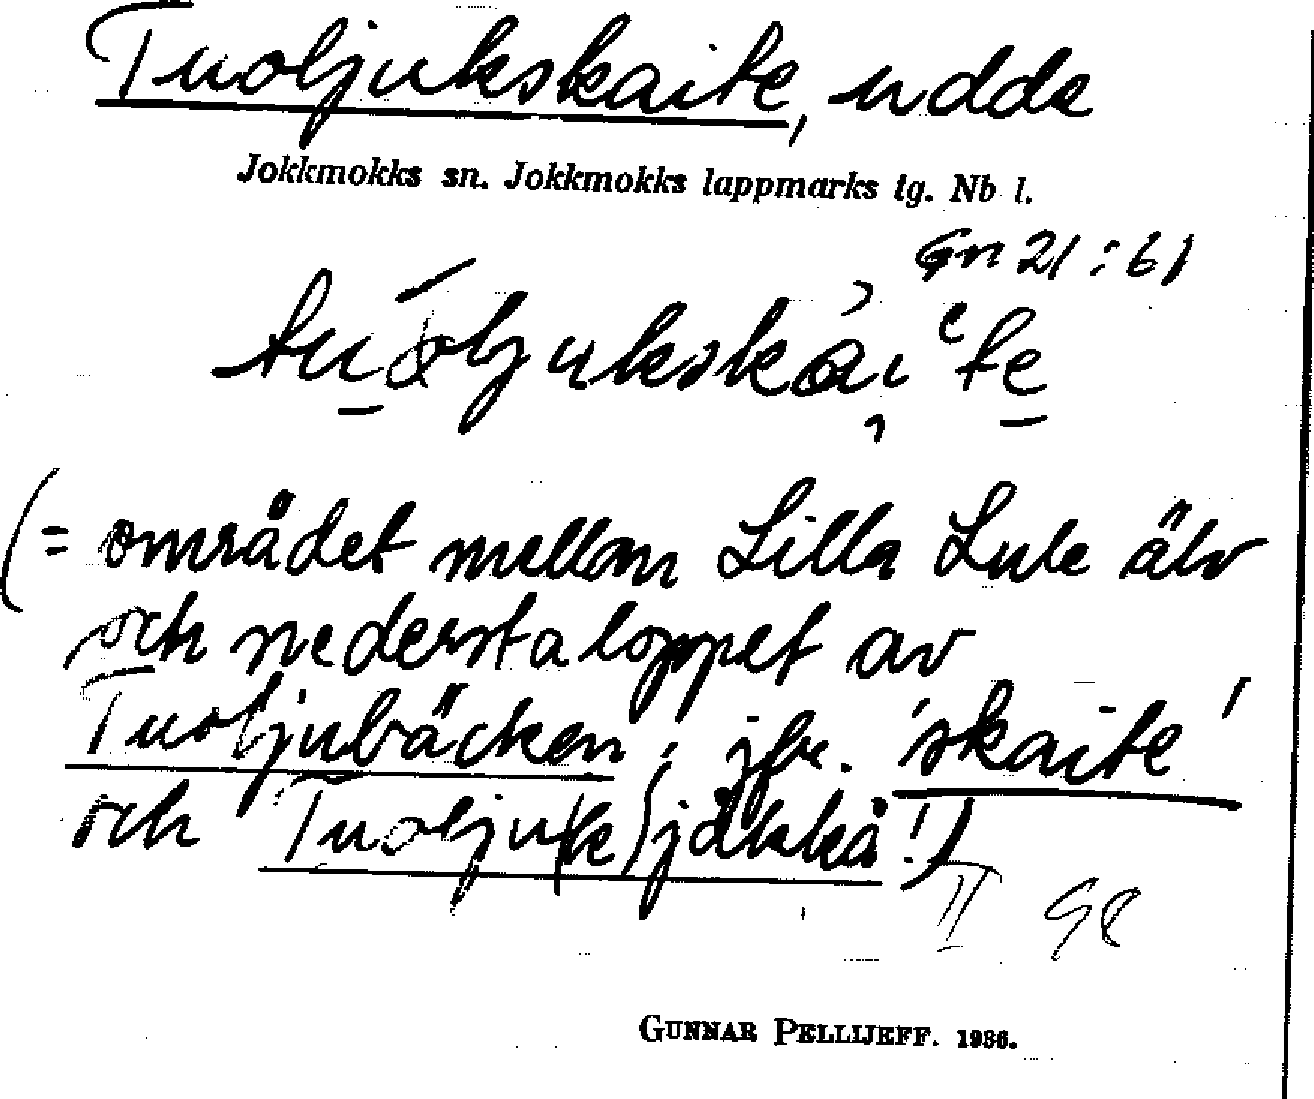 Tuoljukskaite, udde
Jokkmokks sn. Jokkmokks lappmarks tg. Nb l.
Gn 21:61
(= området mellan Lilla Lule älv
och nedersta loppet av
Tuoljubäcken; jfr. 'skaite'
och Tuolju(k)jåkkå!)
II 98
GUNNAR PELLIJEFF. 1936.